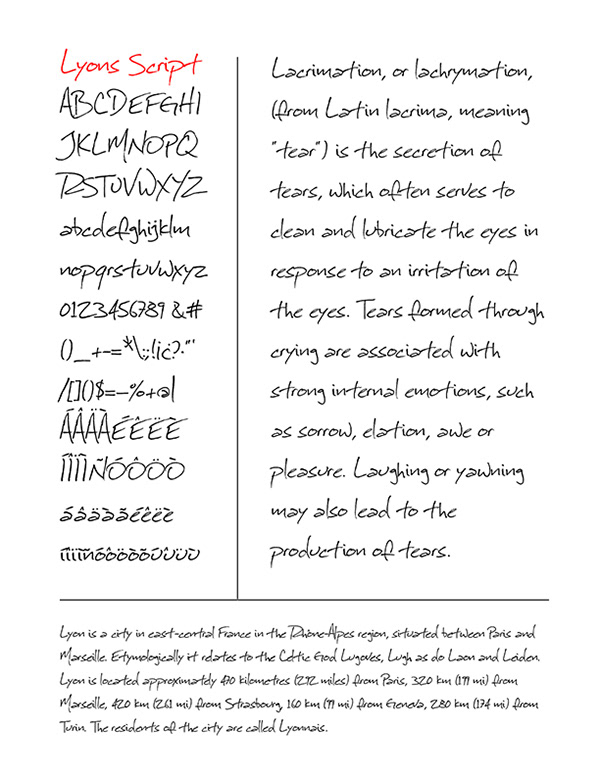 Lyons Script
ABCDEFGHI
JKLMNOPQ
RSTUVWXYZ
abcdefghijklm
nopqrstuvwxyz
0123456789 &#
()_+-=*\;:!¡¿?·"'
/[]()$=–%+@|
ÁÂÄÀÉÊËÈ
ÍÎÏÌÑÓÔÖÒ
áâäàãéêëè
íîïìñóôöòõúûüù
Lacrimation, or lachrymation,
(from Latin lacrima, meaning
"tear") is the secretion of
tears, which often serves to
clean and lubricate the eyes in
response to an irritation of
the eyes. Tears formed through
crying are associated with
strong internal emotions, such
as sorrow, elation, awe or
pleasure. Laughing or yawning
may also lead to the
production of tears.
Lyon is a city in east-central France in the Rhône-Alpes region, situated between Paris and
Marseille. Etymologically it relates to the Celtic God Lugoves, Lugh as do Laon and Leiden.
Lyon is located approximately 470 kilometres (292 miles) from Paris, 320 km (199 mi) from
Marseille, 420 km (261 mi) from Strasbourg, 160 km (99 mi) from Geneva, 280 km (174 mi) from
Turin. The residents of the city are called Lyonnais.